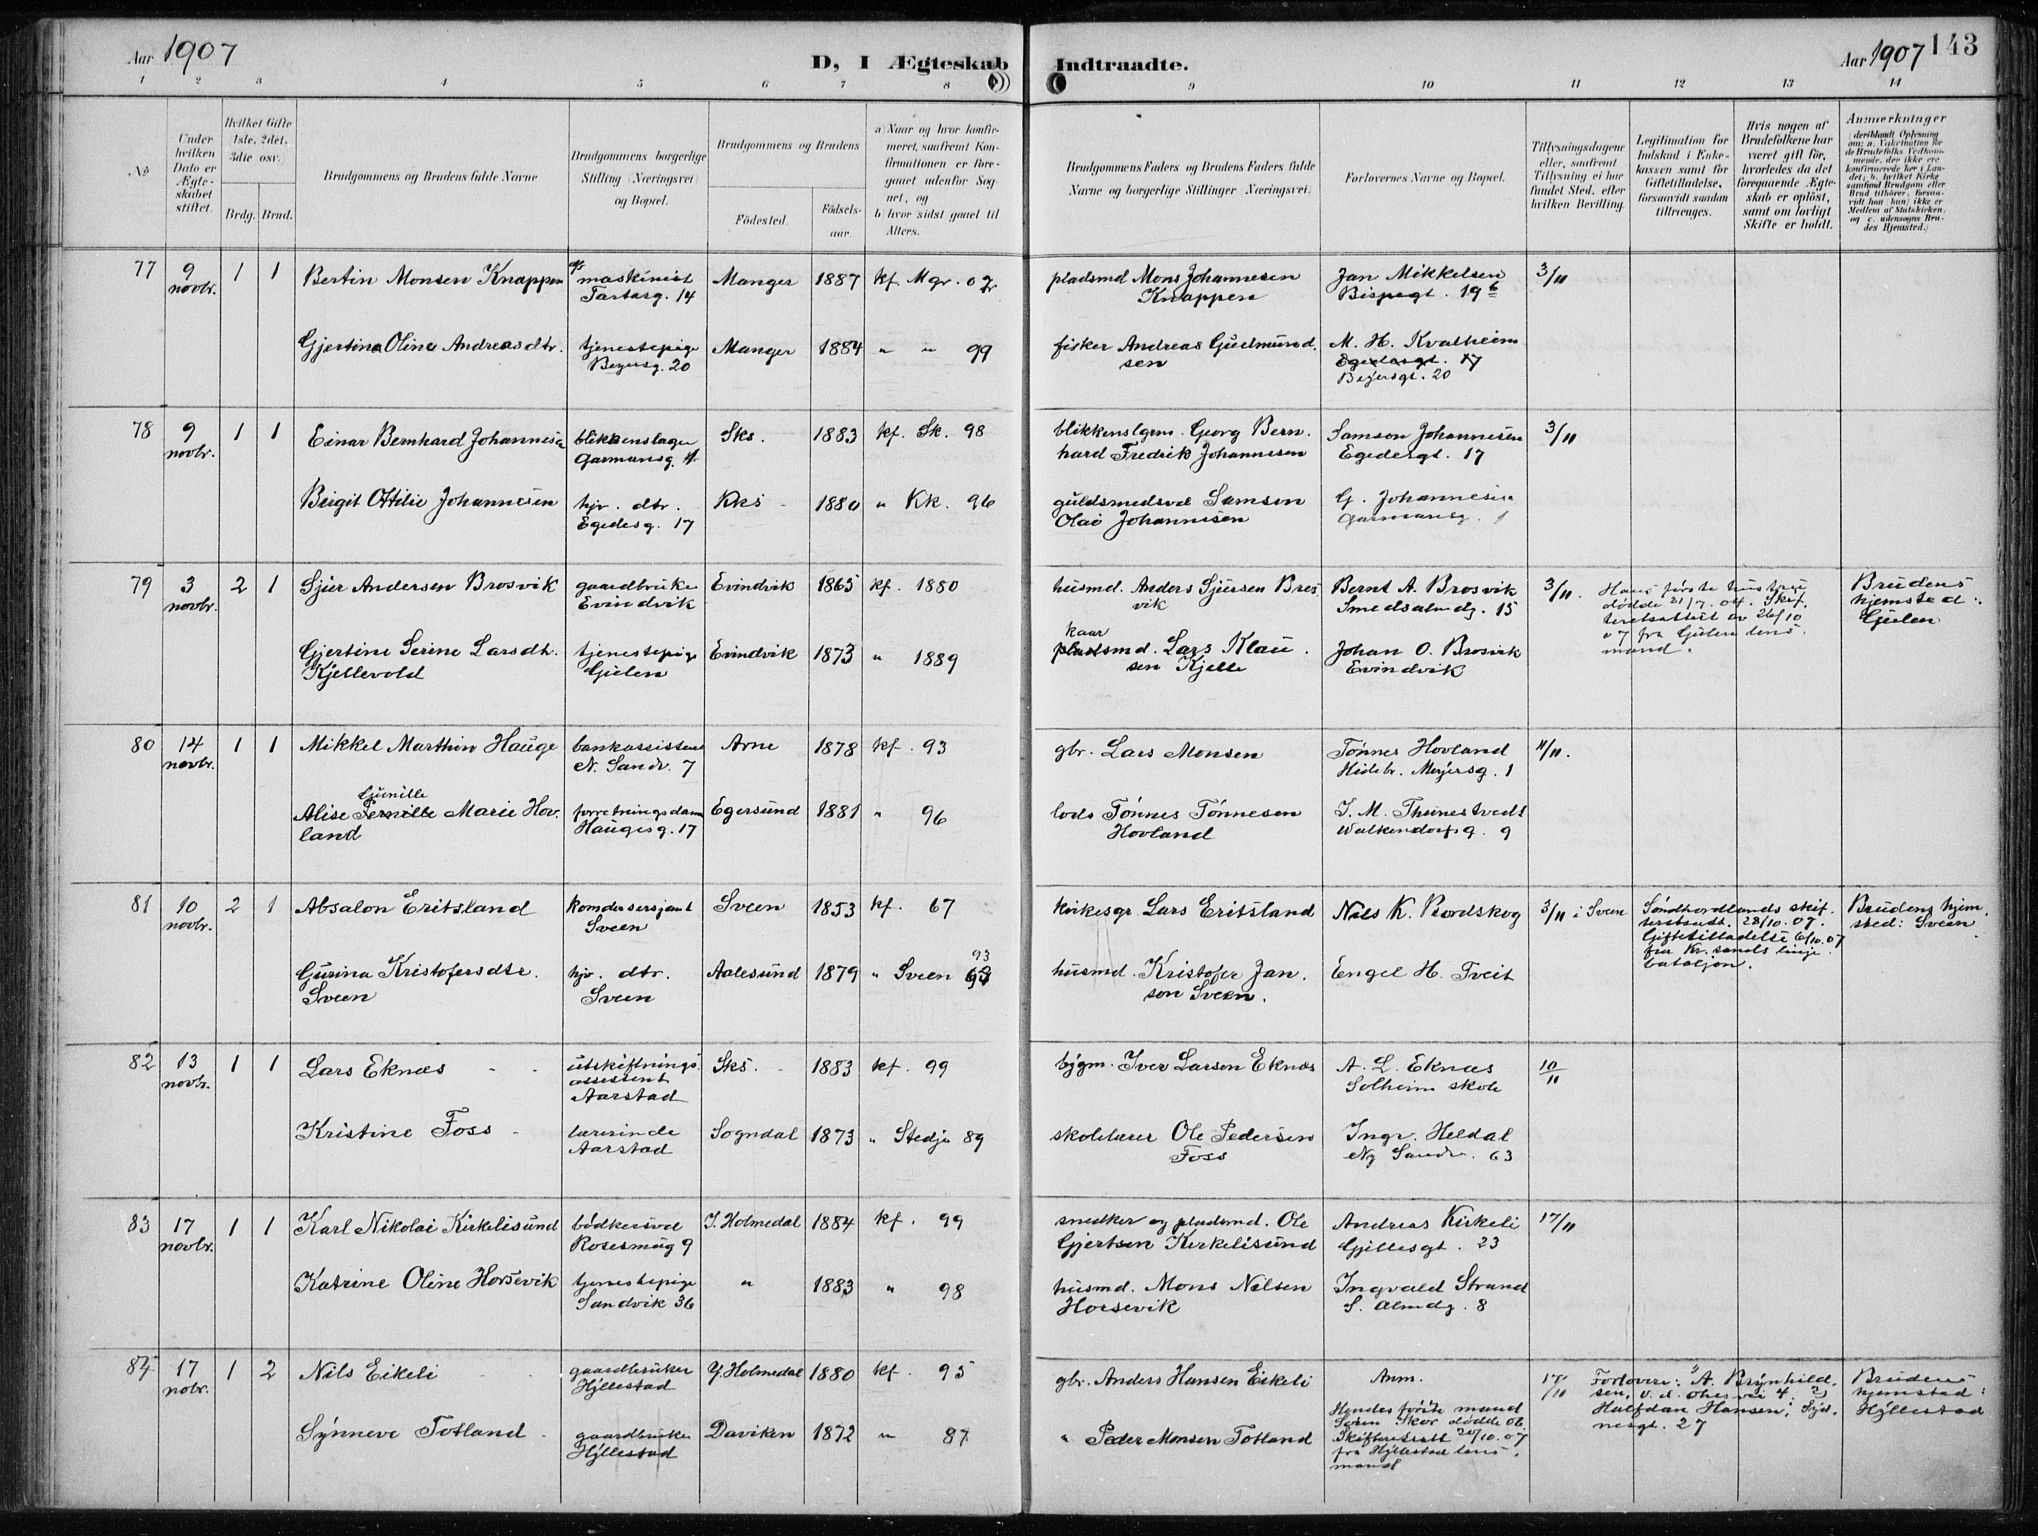 Aar 1907
D, I Ægteskab Indtraadte.
Aar 1907 143
1 2 3 4 5 6 7 8 9 10 11 12 13 14
No
Under hvilken Dato er Ægteskabet stiftet.
Hvilket Gifte 1ste, 2det, 3die osv.)
Brdg. Brud.
Brudgommens og Brudens fulde Navne
Brudgommens borgerlige Stilling (Næringsvei) og Bopæl.
Brudgommens og Brudens
Fødested.
Fødselsaar.
a) Naar og hvor konfirmeret, saafremt Konfirmationen er foregaaet udenfor Sognet, og
b) hvor sidst gaaet til Alters.
Brudgommens Faders og Brudens Faders fulde Navne og borgerlige Stillinger (Næringsvei).
Forlovernes Navne og Bopæl.
Tillysningsdagene eller, saafremt Tillysning ei har fundet Sted, efter hvilken Bevilling.
Legitimation for Indskud i Enkekassen samt for Giftetilladelse, forsaavidt saadan tiltrænges.
Hvis nogen af Brudefolkene har været gift før, hvorledes da det foregaaende Ægteskab er opløst, samt om lovligt Skifte er holdt.
Anmærkninger
(deriblandt Oplysning om: a. Vakcination for de Brudefolks Vedkommende, der ikke ere konfirmerede her i Landet; b. hvilket Kirkesamfund Brudgom eller Brud tilhører, forsaavidt han (hun) ikke er Medlem af Statskirken, og c. udensogns Brudes Hjemsted.)
77 9 novbr. 1 1 Bertin Monsen Knappen maskinist Tartarg. 14 Manger 1887 kf. Mgr. 02
pladsmd Mons Johannesen Knappen Jan Mikkelsen Bispegt. 19 b 3/11
Gjertina Olina Andreasdtr. tjenestepige Beyersg. 20 Manger 1884 " " 99
fisker Andreas Gudmundsen M. H. Kvalheim Egedesgt. 17 Beyersgt. 20
78 9 novbr. 1 1 Einar Bernhard Johannesen blikkenslager Garmansg. 1 Sks. 1883 kf. Sk. 98
blikkenslgrm. Georg Bernhard Fredrik Johannesen Samson Johannesen Egedesgt. 17 3/11
Birgit Ottilie Johannesen hjv. dtr. Egedesg. 17 Kks 1880 " Kk. 96
guldsmedsvd Samson Olai Johannesen G. Johannesen Garmansg. 1
79 3 novbr. 2 1 Sjur Andersen Brosvik gaardbruker Evindvik Evindvik 1865 kf. 1880
husmd. Anders Sjursen Brosvik Bernt A. Brosvik Smedsalmdg. 15 3/11. Hans første hustru døde 21/7. 04. Skifteretsattest av 26/10 07 fra Gulen lensmand. Brudens hjemsted: Gulen
Gjertine Serine Larsdtr. Kjellevold tjenestepige Gulen Evindvik 1873 " 1889
kaar pladsmd. Lars Klausen Kjelle Johan O. Brosvik Evindvik
80 14 novbr. 1 1 Mikkel Marthin Hauge bankassistent N. Sandv. 7 Arne 1878 kf. 93
gbr. Lars Monsen Tønnes Hovland Hildebr. Meyersg. 1 4/11.
Alise Gunille Pernille Marie Hovland forretningsdame Haugesg. 17 Egersund 1881 " 96
lods Tønnes Tønnesen Hovland S. M. Thunestvedt Walkendorfsg. 9
81 10 novbr. 2 1 Absalon Eritsland komdersersjant Sveen Sveen 1853 kf. 67
kirkesgr Lars Eritsland Nils K. Bordskog 3/11 i Sveen Søndhordlands skifteretsatt. 28/10. 07. Giftetilladelse 6/10. 07 fra Kr.sands linjebataljon. Brudens hjemsted: Sveen
Gurina Kristofersdtr. Sveen hjv. dtr. Sveen Aalesund 1879 " Sveen 93
husmd. Kristofer Janson Sveen. Engel H. Tveit
82 13 novbr. 1 1 Lars Eknæs utskiftningsassistent Aarstad Sks. 1883 kf. 99
bygm. Iver Larsen Eknæs A. L. Eknæs Solheim skole 10/11
Kristine Foss lærerinde Aarstad Sogndal 1873 " Stedje 89
skolelærer Ole Pedersen Foss Ingv. Heldal Ny Sandv. 63
83 17 novbr. 1 1 Karl Nikolai Kirkelisund bødkersvd Rosesmug 9 Y. Holmedal 1884 kf. 99
snedker og pladsmd. Ole Gjertsen Kirkelisund Andreas Kirkeli Gjellesgt. 23 17/11
Katrine Oline Horsevik tjenestepige Sandvik 36 " 1883 " 98
husmd. Mons Nilsen Horsevik Ingvald Strand S. Almdg. 8
84 17 nobr. 1 2 Nils Eikeli gaardbruker Hyllestad Y. Holmedal 1880 kf. 95
gbr. Anders Hansen Eikeli Anm. 17/11 Forlovere: A. Brynhildsen, v. d. Ohesvei 4. 2) Halfdan Hansen, Sydnesgt. 27 Brudens hjemstad: Hyllestad
Synneve Totland gaardbruker Hyllestad Daviken 1872 " 87
" Peder Monsen Totland Hendes første mand Søren Skor døde 06 Skifteretsatt 26/10. 07 fra Hyllestad lensmand